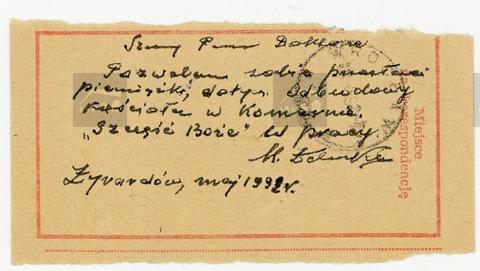 Szanowny Panie Doktorze
Pozwalam sobie przesłać
pieniążki, dotyc. Odbudowy
Kościoła w Komarnie.
"Szczęść Boże" w pracy.
Żyrardów, maj 1992r.
Miejsce
na korespondencję